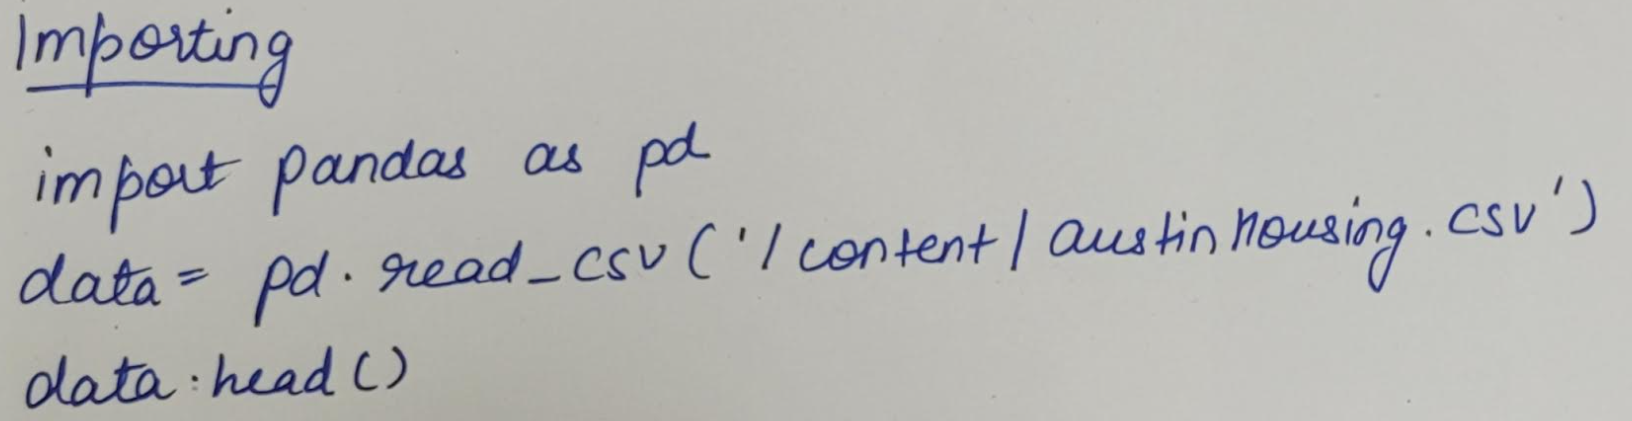 Importing
import pandas as pd
data = pd.read_csv('/content/austinhousing.csv')
data.head()